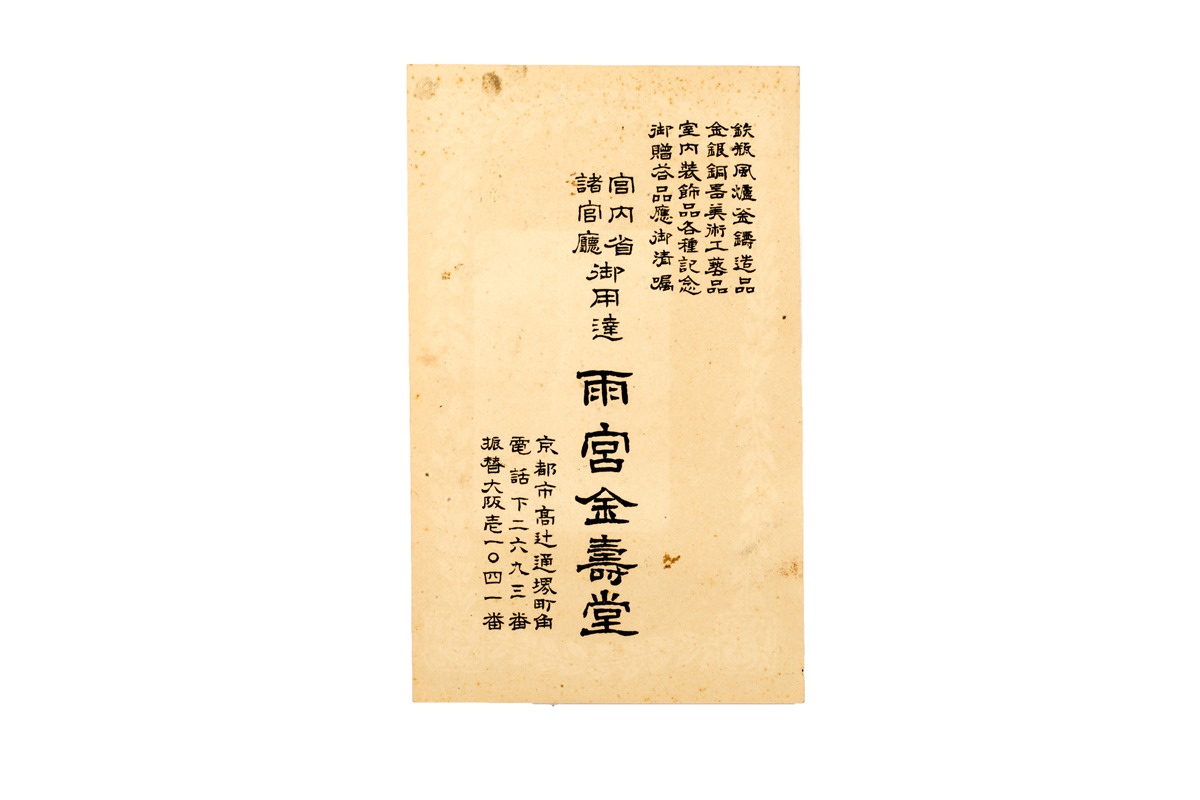 鉄瓶風爐釜鑄造品
金銀銅器美術工藝品
室内装飾品各種記念
御贈答品應御清嘱
宮内省
諸官廳
御用達
雨宮金壽堂
京都市高辻通堺町角
電話下二六九三番
振替大阪壱一〇四一番